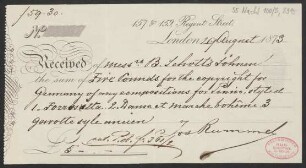 159.30.
157 & 159, Regent Street,
London, August 1873
Received of Messrs B. Schott's Söhne
the sum of Five Pounds for the copyright for
Germany of my compositions for Piano, styled
1. 2. Danse et marche bohême 3
gavotte style ancien
£5
Jos Rummel